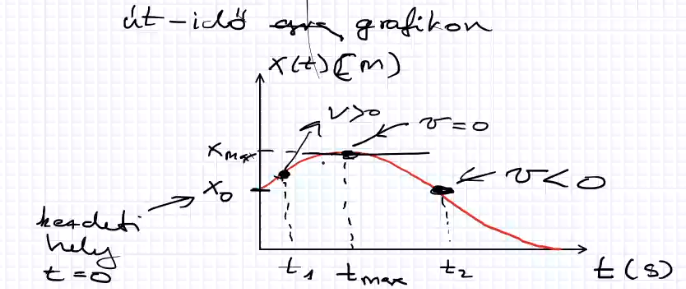 út-idő grafikon
x(t)[m)
v>0
v=0
xmax
x0
v<0
kezdeti
hely
t=0
t1
tmax
t2
t(s)